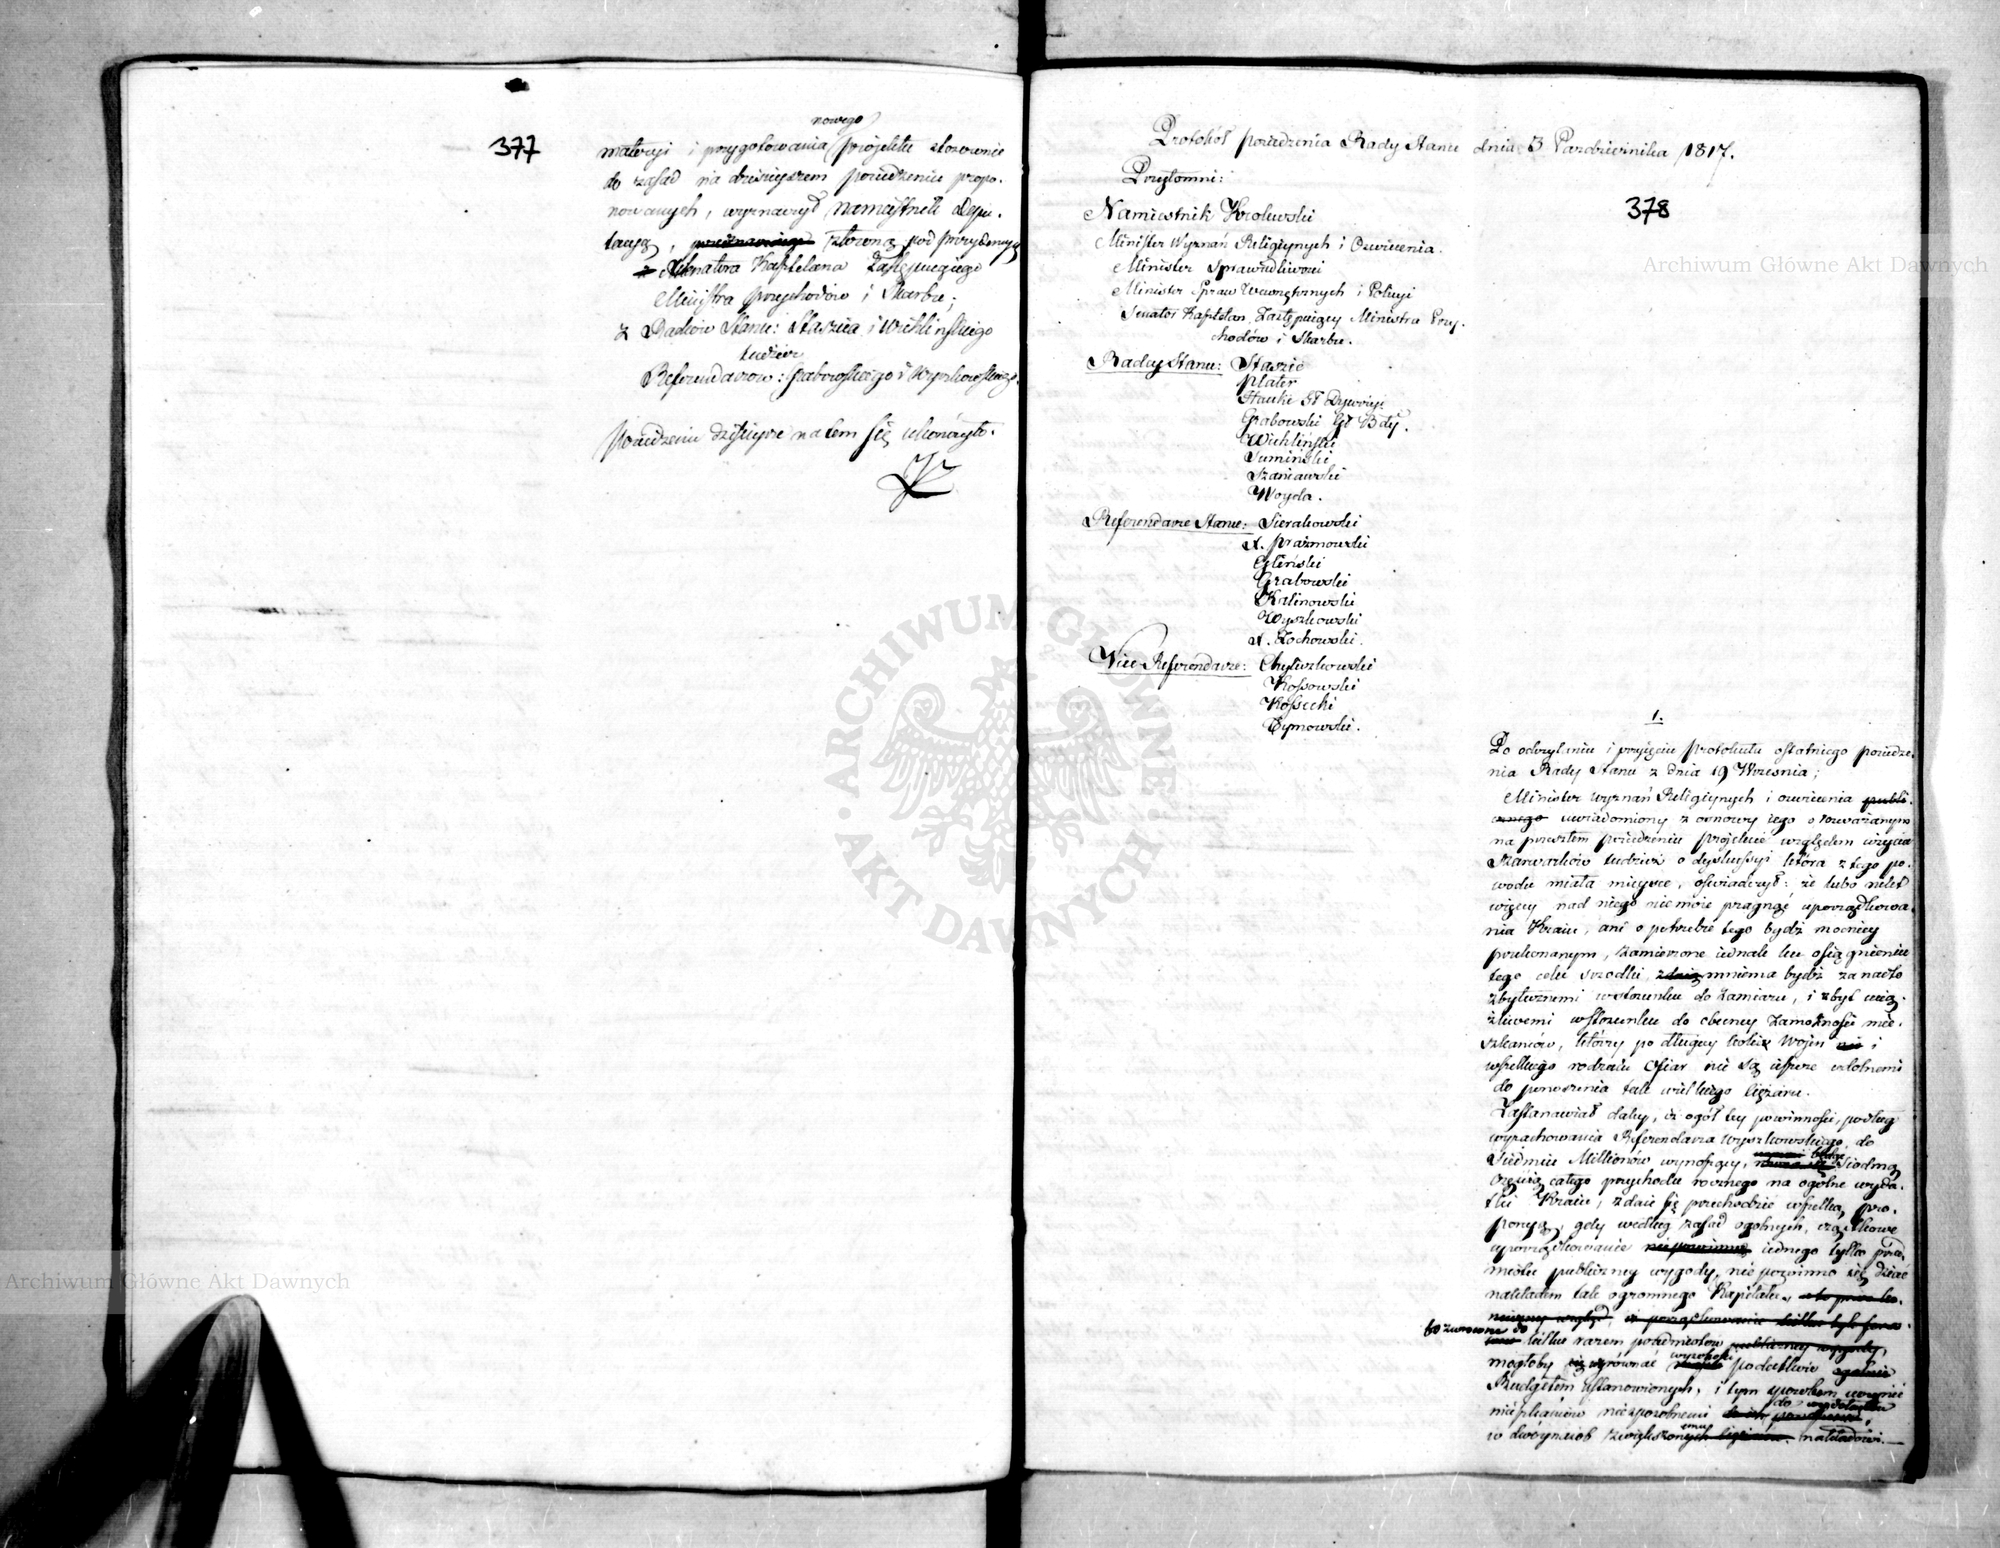 377
nowego
materyi i przygotowania projektu stosownie
do zasad na dzisieyszem posiedzeniu propo-
nowanych, wyznaczył Namiestnik Depu-
tacyą, złożoną pod prezydencyą
z Senatora Kasztelana Zastępuiącego
Ministra Przychodów i Skarbu;
z Radców Stanu: Staszica i Wichlińskiego
tudzież
Referendarzów: Grabowskiego i Wyszkowskiego.
Posiedzenie dzisieysze na tem się ukończyło.
Protokół posiedzenia Rady Stanu dnia 3 Pazdziernika 1817.
Przytomni:
378
Namiestnik Krolewski
Minister Wyznań Religiynych i Oswiecenia.
Minister Sprawiedliwosci
Minister Spraw Wewnętrznych i Policyi
Senator Kasztelan Zastępuiący Ministra Przy-
chodów i Skarbu.
Radcy Stanu: Staszic
Plater
Hauke Gł Dywizyi
Grabowski Gł Bdy.
Wichliński
Sumiński
Szaniawski
Woyda.
Referendarze Stanu: Sierakowski
X. Prażmowski
Gliński
Grabowski
Kalinowski
Wyszkowski
X. Żochowski.
Vice-Referendarze: Chyliczkowski
Kossowski
Kossecki
Tymowski.
1.
Po odczytaniu i przyięciu protokułu ostatniego posiedze-
nia Rady Stanu z dnia 19 Wrzesnia;
Minister Wyznań Religiynych i oswiecenia publi-
cznego uwiadomiony z osnowy iego o rozważanym
na przeszłem posiedzeniu proiekcie względem użycia
Szarwarków tudzież o dyskussyi która z tego po-
wodu miała mieysce, oswiadczył: że lubo nikt
więcey nad niego nie może pragnąć uporządkowa-
nia Kraiu, ani o potrzebie tego bydź mocniey
przekonanym, zamierzone iednak ku osiągnieniu
tego celu srzodki, zdaią mniema bydź za nadto
zbytecznemi w stosunku do zamiaru, i zbyt ucią-
żliwemi w stosunku do obecney zamożności mie-
szkanców, którzy po długiey kolei Woien i
wszelkiego rodzaiu Ofiar nie są ieszcze zdolnemi
do ponoszenia tak wielkiego ciężaru.
Zastanawiał daley, iż ogół tey powinności, podług
wyrachowania Referendarza Wyszkowskiego, do
Siedmiu Millionów wynoszący, Siodmą
częścią całego przychodu rocznego na ogólne wyda-
tki Kraiu, zdaie się przechodzić wszelką pro-
porcyą, gdy według zasad ogolnych, cząstkowe
uporządkowanie iednego tylko prze-
miotu publiczney wygody, nie powinno się dziać
nakładem tak ogromnego Kapitału,
kilku razem przedmiotów publiczney wygody,
mogłoby się zrównać wysokości podatków ogólnie
Budgetem ustanowionych, i tym sposobem uczynić
mieszkańców niesposobnemi do wydołania
w dwoynasob zwiększonemu nakładowi.
Archiwum Główne Akt Dawnych
Archiwum Główne Akt Dawnych
ARCHIWUM GŁÓWNE AKT DAWNYCH